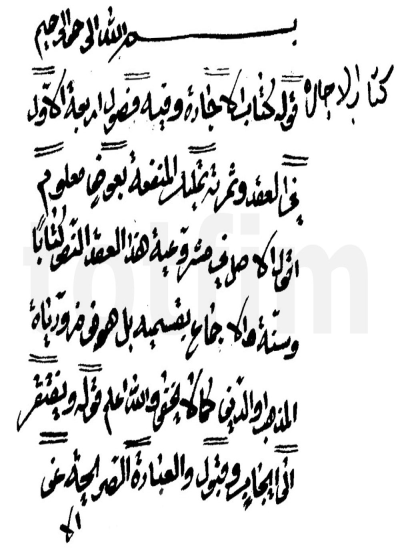 بسم الله الرحمن الرحيم
كتاب الاجارة
قوله كتاب الاجارة وفيه فصول اربعة الاول
في العقد وثمرته تمليك المنفعة بعوض معلوم
اقول الاصل في مشروعية هذا العقد النص كتابا
وسنة والاجماع بقسميه بل هو من ضروريات
المذهب او الدين كما لا يخفى والله اعلم قوله ويفتقر
الى ايجاب وقبول والعبارة الصريحة عن
الا